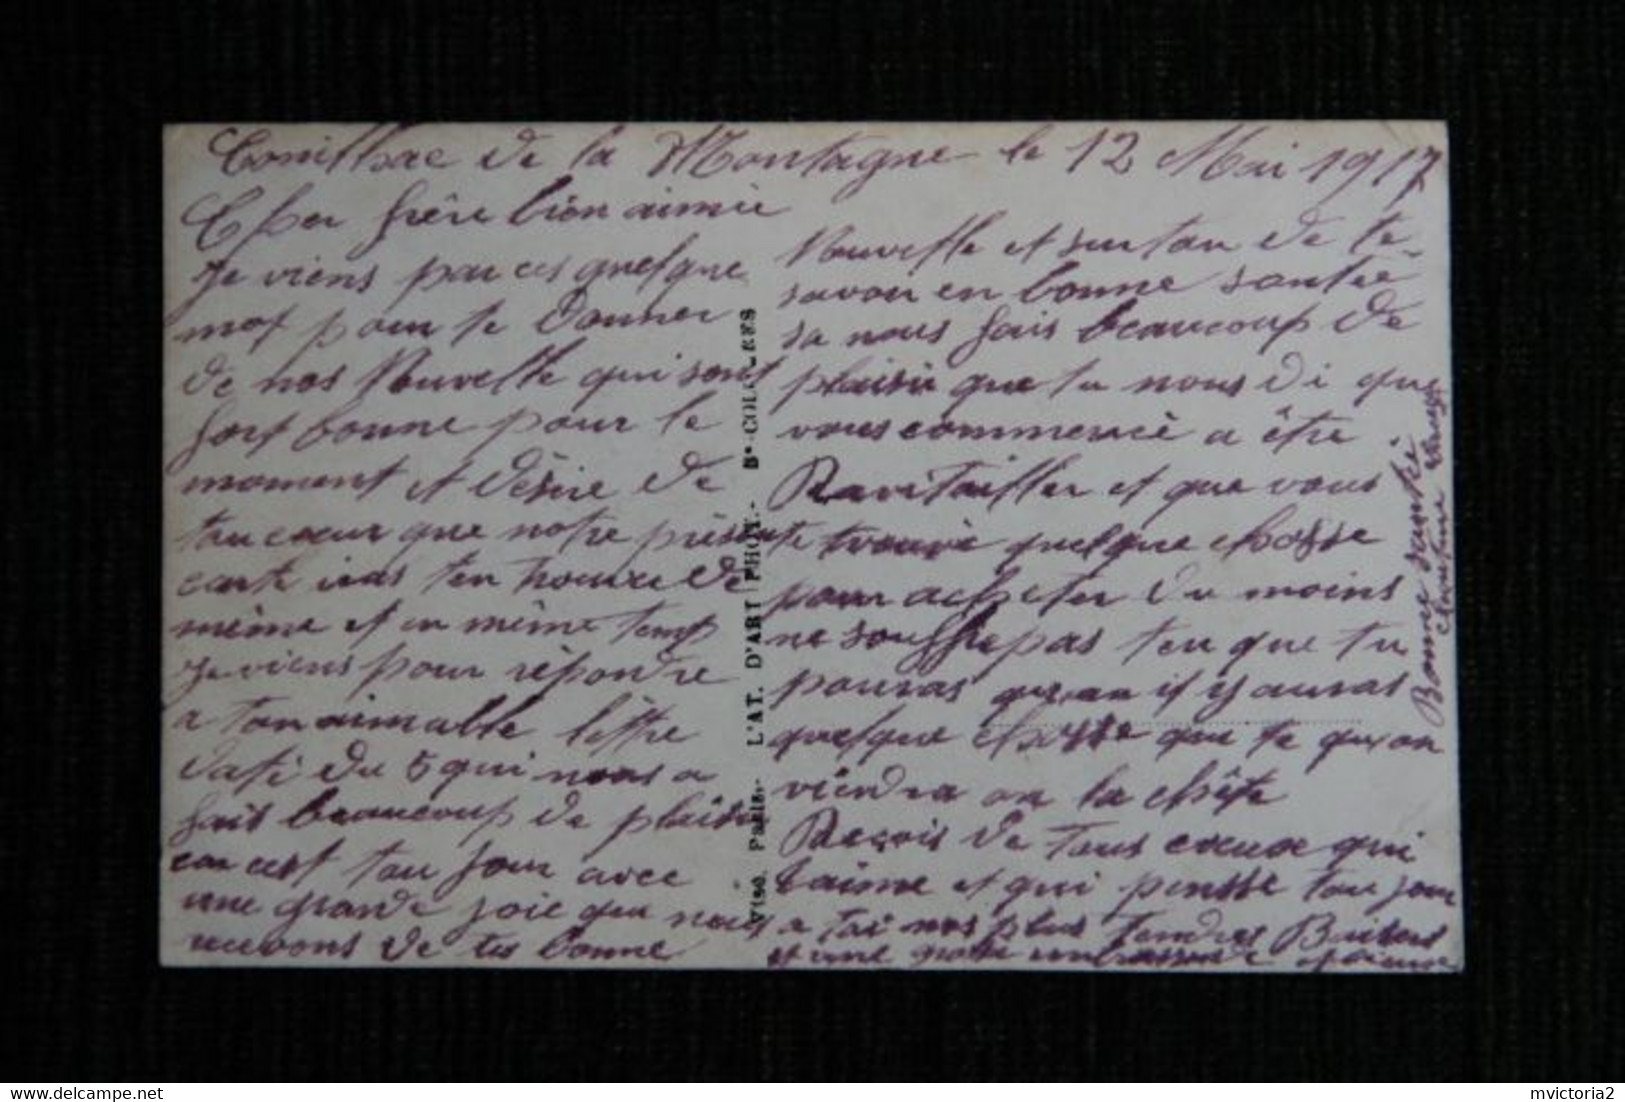 Conilhac de la Montagne le 12 Mai 1917
Cher frère bien aimée
Je viens par ces quelque
mot pour te Donner
de nos Nouvelle qui sont
fort bonne pour le
moment et désire de
tou cœur que notre présente
carte iras ten trouve de
même et en même temp
Je viens pour répondre
a ton aimable lettre
daté du 5 qui nous a
fais beaucoup de plaisir
car cest tou jour avec
une grande joie que nous
recevons de tes bonne
Nouvelle et surtou de te
savoir en bonne santée
sa nous fais beaucoup de
plaisir que tu nous di que
vous commencé a être
Ravitailler et que vous
trouvé quelque chosse
pour acheter du moins
ne souffre pas ten que tu
pouras quan il y auras
quelque chosse que te quon
viendra on la chête
Reçois de tous ceux qui
taime et qui pensse tou jour
a toi nos plus tendres Baisers
et une grosse embrassade
Bonne santé.
Viso. Paris.- L'AT. D'ART PHOT.- Bs-COLOMBES
mvictoria2